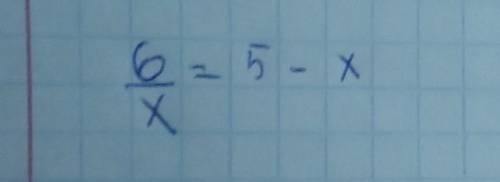 6/x = 5 - x